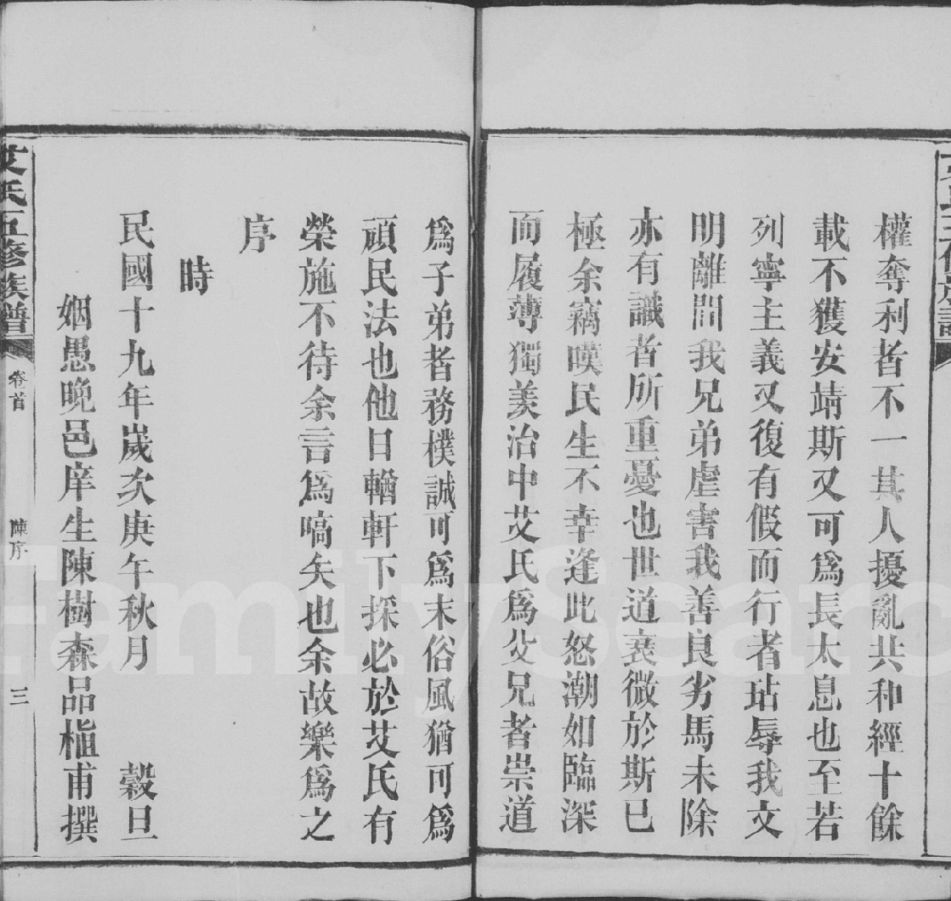 權奪利者不一其人擾亂共和經十餘
載不獲安靖斯又可爲長太息也至若
列寧主義又復有假而行者玷辱我文
明離間我兄弟虐害我善良劣馬未除
亦有識者所重憂也世道衰微於斯已
極余竊嘆民生不幸逢此怒潮如臨深
而履薄獨羙治中艾氏爲父兄者崇道
爲子弟者務樸誠可爲末俗風猶可爲
頑民法也他日輶軒下採必於艾氏有
榮施不待余言爲嚆矢也余故樂爲之
序
時
民國十九年歲次庚午秋月 穀旦
姻愚晚邑庠生陳樹森品植甫撰
艾氏五修族譜 卷首 陳序 三
FamilySearch